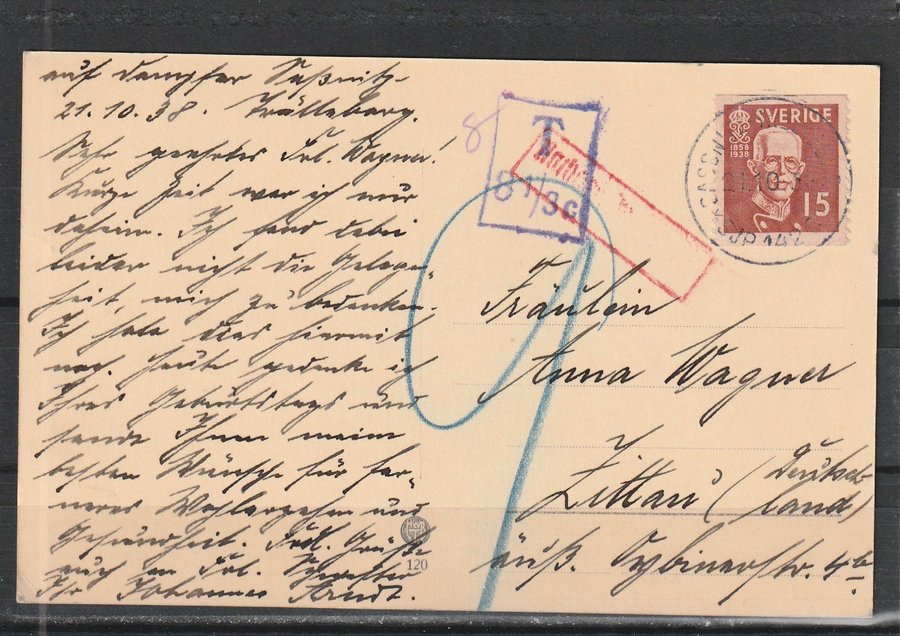 auf Dampfer Saßnitz-
21.10.38. Trälleborg.
Sehr geehrtes Frl. Wagner!
Kurze Zeit war ich nur
daheim. Ich fand dabei
leider nicht die Gelegen-
heit, mich zu bedanken.
Ich hole dies hiermit
nach. Heute gedenke ich
Ihres Geburtstags und
sende Ihnen meine
besten Wünsche für fer-
neres Wohlergehen und
Gesundheit. Frdl. Grüße
auch an Frl. Schwester
Ihr Johannes Arndt.
120
8
T
8 1/3 c
Nachgebühr
SVERIGE
1858
1938
15
SASSN
21.10
Fräulein
Anna Wagner
Zittau (Deutsch-
land)
äuß. Oybinerstr. 4b